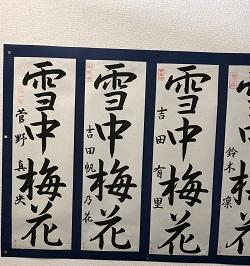 雪中梅花
鈴木 凛
雪中梅花
吉田 有里
雪中梅花
吉田 帆乃花
雪中梅花
菅野 真央